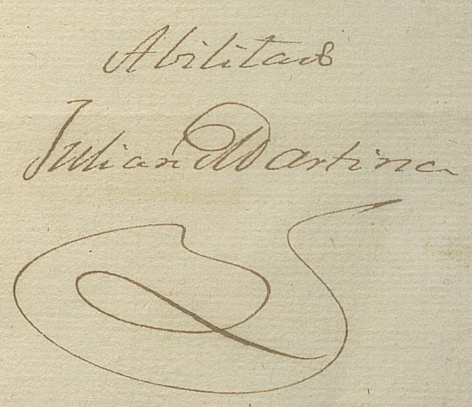 Abilitado
Julian Martina